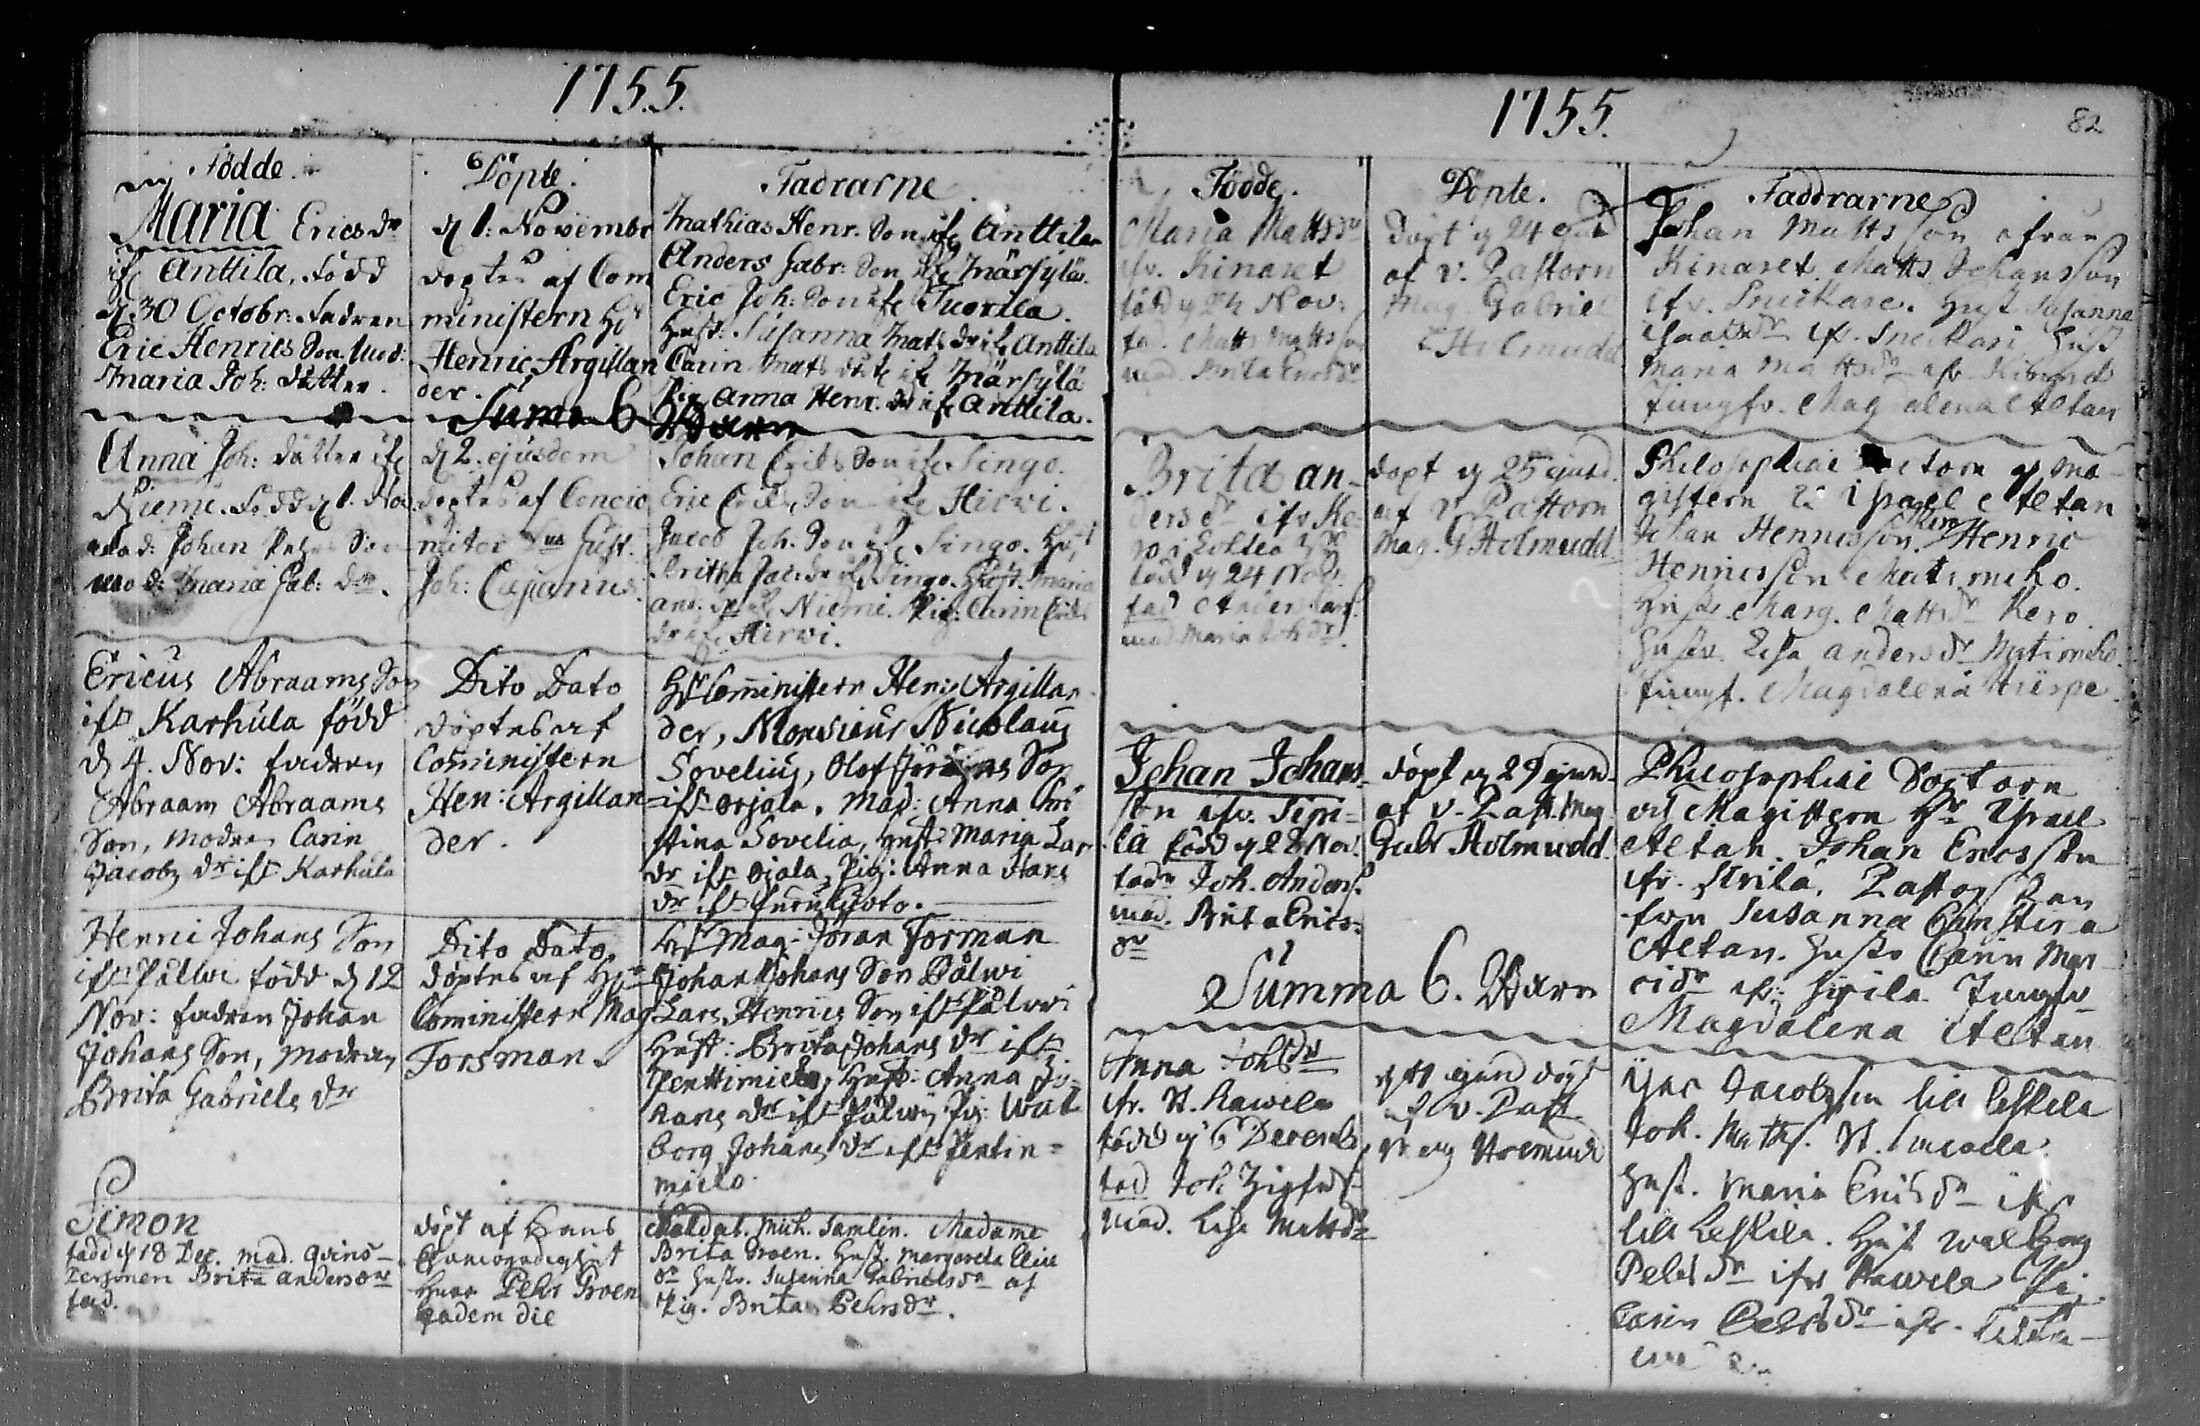 1755.
Födde.
Maria Ericsdr
ifr Anttila, född
d 30 Octobr: fadren
Eric Henrics Son. Mod:
Maria Joh: dotter.
Döpte.
d 1: Novembr
döptes af Com
ministern Hr
Henric Argillan
der.
Fadrarne
Mathias Henr. Son ifr Anttila
Anders Gabr: Son ifr Märsylä.
Eric Joh: Son ifr Tuorila.
Hust: Susanna Mats dr ifr Anttila
Carin Mats dr ifr Märsylä
Pig. Anna Henr. dr ifr Anttila.
Suma 6 Barn
Anna Joh: dotter ifr
Niemi. Född d 1. Nov
Fad: Johan Son
mod: Maria Gab: dr.
d 2. ejusdem
döptes af Concio
nator Gust.
Joh: Cajanus.
Johan Erics Son ifr Singo.
Eric Erics Son ifr Hirvi.
Jacob Joh. Son ifr Singo. Hust
Britha Jac: dr ifr Singo. Hust. Maria
And: dr ifr Niemi. Pig: Carin Erics
dr ifr Hirvi.
Ericus Abraams Son
ifr Karhula född
d 4. Nov: fadren
Abraam Abraams
Son, modren Carin
Jacobs dr ifr Karhula
Dito Dato
döptes af
Cominist​ern
Hen: Argillan
der.
Hr Cominist​ern Henr: Argillan
der, Monsieur Nicolaus
Sovelius, Olof Son
ifr Orjala. Mad: Anna Chri
stina Sovelia, Hust: Maria Lar
dr ifr Ojala, Pig: Anna Hans
dr ifr
Henric Johans Son
ifr Pålwi född d 12
Nov: fadren Johan
Johans Son, Modren
Brita Gabriels dr
Dito Dato
döptes af Hr
Cominist​ern Mag
Forsman.
Hr Mag: Jöran Forsman
Johan Johans Son Pålwi
Lars Henrics Son ifr Pålwi
Hust: Brita Johans dr ifr
Penttimielo, Hust: Anna Jo-
hans dr ifr Pålwi, Pig: Wal
borg Johans dr ifr Pentin=
mielo.
Simon
född d 18 Dec. mod. qvins-
personen Brita andersdr
fad.
döpt af Hans
Herr Pehr Broen
eadem die
Soldat. Mich. Samlin. Madame
Brita Broen. Hust. Margareta Elias
dr Hustr. Susanna Gabrielsdr af
Pig. Brita Pehrsdr.
1755.
82
Födde.
Maria Mattsdr
ifr. Kinaret
född d 24 Nov.
fad. Matts Mattsson
mod. Brita Ericsdr
Döpte.
döpt d 24 ejusd
af v. Pastorn
Mag Gabriel
Holmudd
Faddrarne
Johan Mattsson ifrån
Kinaret Matts Johansson
ifr. Snickare. Hust Susanna
Isaacsdr ifr. Snickari Hust
Maria Mattsdr ifr. Kinaret
Jungfr. Magdalena Aeltan
Brita an-
dersdr ifr Ke-
ro i
född d 24 Nov.
fad Anders
mod Maria Johdr.
döpt d 25 ejusd.
af v Pastorn
Mag. G Holmudd
Philosophiae Doctorn och Ma-
gistern Hr Israel Aeltan
Johan Henricsson Kero Henric
Henricsson Matimeko.
Hustr Marg. Mattsdr Kero.
Hustr Lisa andersdr Matimeko.
Jungf. Magdalena
Johan Johans-
son ifr. Sipi-
la född d 28 Nov.
fadr Joh. Anders.
mod. Brita Erics-
dr
döpt d 29 ejusd.
af v. Past. Mag
Gabr Holmudd.
Philosophiae Doctorn
och Magistern Hr Israel
Aeltan. Johan Ericsson
ifr. Sipilä. Pastorskan
fru Susanna Christina
Aeltan. Hustr Carin Mar-
cidr ifr: Sipila. Jungfr
Magdalena Aeltan
Summa 6. Barn
Anna Johsdr
ifr. N. Rawela
född d 6 Decemb
fad Joh Zigfrds
Mod. Lisa Mattsdr
ejusd döpt
af v. Past
Mag Holmudd
Jacobsson lill Leskela
Joh. Maths. N.
Hust. Maria Ericsdr ifr
lill Leskila. Hust Walborg
Pehrsdr ifr Rawela Pig.
Carin Pehrsdr ifr.